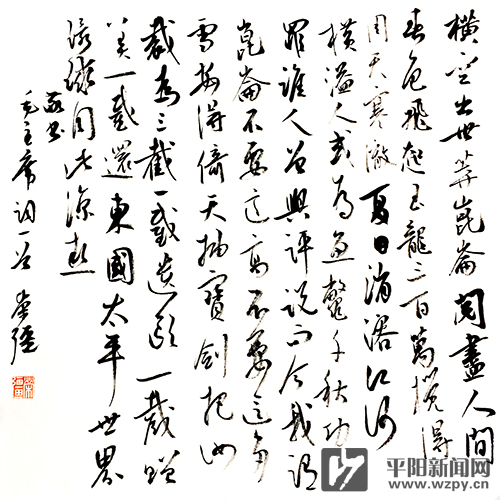 横空出世莽崑崙閱盡人間
春色飛起玉龍三百萬攪得
周天寒澈夏日消溶江河
横溢人或为鱼鳖千秋功
罪谁人曾與評说而今我谓
崑崙不要这高不要这多
雪安得倚天抽寶劍把汝
裁为三截一截遗欧一截赠
美一截還東國太平世界
環球同此凉热
敬书
毛主席词一首
平阳新闻网
www.wzpy.cn